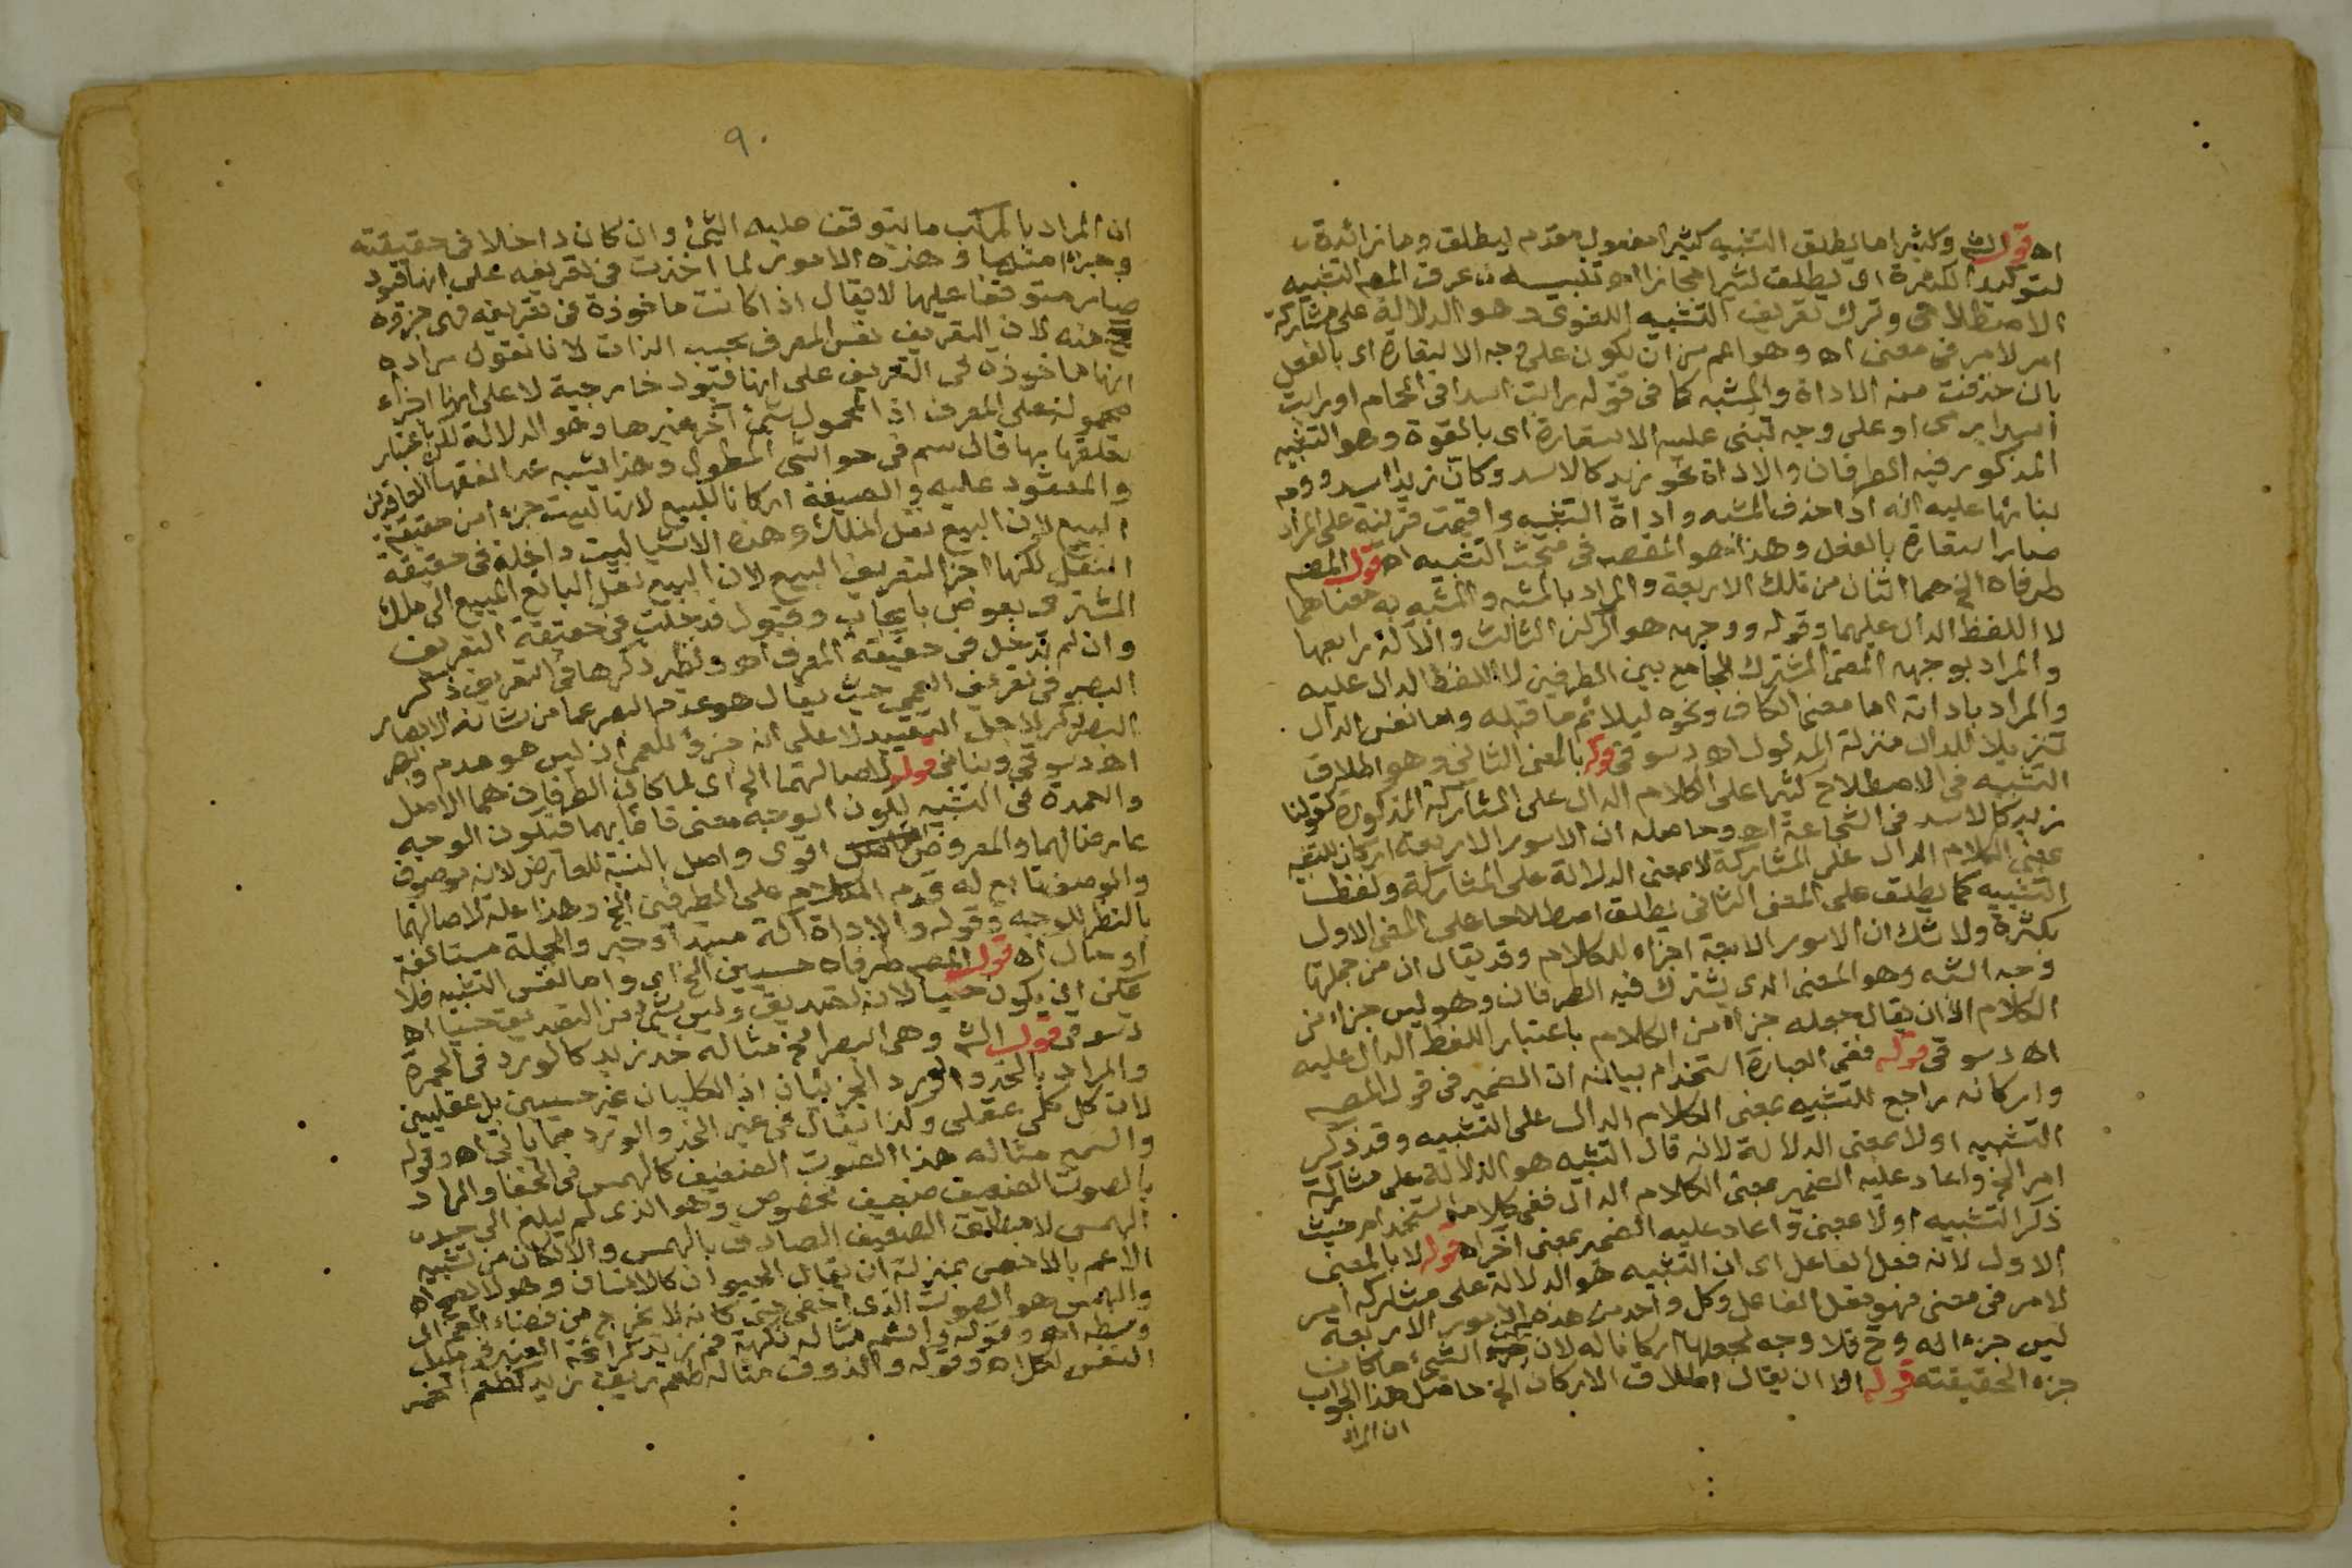 اه قول الش وكثيرا ما يطلق التشبيه كثيرا مفعول مقدم ليطلق وما زائدة
لتوكيد الكثرة اى يطلق كثيرا مجازا اه تنبيه عرف المص التشبيه
الاصطلاحى وترك تعريف التشبيه اللغوى وهو الدلالة على مشاركة
امر لامر فى معنى اه وهو اعم من ان يكون على وجه الاستعارة اى بالفعل
بان حذفت منه الاداة والمشبه كما فى قوله رايت اسدا فى الحمام او رايت
اسدا يرمى او على وجه تبنى عليه الاستعارة اى بالقوة وهو التشبيه
المذكور فيه الطرفان والاداة نحو زيد كالاسد وكان زيدا اسد ووجه
بنائها عليه انه اذا حذف المشبه واداة التشبيه واقيمت قرينة على المراد
صار استعارة بالفعل وهذا هو المقصد فى مبحث التشبيه اه قول المص
طرفاه الخ هما اثنان من تلك الاربعة والمراد بالمشبه والمشبه به معناهما
لا اللفظ الدال عليهما وقوله ووجهه هو الركن الثالث والآلة رابعها
والمراد بوجهه المعنى المشترك الجامع بين الطرفين لا اللفظ الدال عليه
والمراد باداته اما معنى الكاف ونحوه ليلائم ما قبله واما نفس الدال
تنزيلا للدال منزلة المدلول اه دسوقى قوله بالمعنى الثانى وهو اطلاق
التشبيه فى الاصطلاح كثيرا على الكلام الدال على المشاركة المذكورة كقولنا
زيد كالاسد فى الشجاعة اه وحاصله ان الامور الاربعة اركان للتشبيه
بمعنى الكلام الدال على المشاركة لا بمعنى الدلالة على المشاركة ولفظ
التشبيه كما يطلق على المعنى الثانى يطلق اصطلاحا على المعنى الاول
بكثرة ولا شك ان الامور الاربعة اجزاء للكلام وقد يقال ان من جملتها
وجه الشبه وهو المعنى الذى يشترك فيه الطرفان وهو ليس جزاء من
الكلام الا ان يقال جعله جزاء من الكلام باعتبار اللفظ الدال عليه
اه دسوقى قوله ففى العبارة استخدام بيانه ان الضمير فى قول المص
واركانه راجع للتشبيه بمعنى الكلام الدال على التشبيه وقد ذكر
التشبيه اولا بمعنى الدلالة لانه قال التشبيه هو الدلالة على مشاركة
امر الخ واعاد عليه الضمير بمعنى الكلام الدال ففى كلامه استخدام حيث
ذكر التشبيه اولا بمعنى واعاد عليه الضمير بمعنى آخر اه قوله لا بالمعنى
الاول لانه فعل الفاعل اى ان التشبيه هو الدلالة على مشاركة امر
لامر فى معنى فهو فعل الفاعل وكل واحد من هذه الامور الاربعة
ليس جزءا له وح فلا وجه لجعلها اركانا له لان الشىء ما كان
جزء الحقيقته قوله الا ان يقال اطلاق الاركان الخ حاصل هذا الجواب
ان المراد
٩٠
ان المراد بالمركب ما يتوقف عليه الشىء وان كان داخلا فى حقيقته
وجزءا منها وهذه الامور لما اخذت فى تعريفه على انها قيود
صار متوقفا عليها لا يقال اذا كانت ماخوذة فى تعريفه فهى جزؤه
منه لان التعريف نفس المعرف بحسب الذات لانا نقول مراده
انها ماخوذة فى التعريف على انها قيود خارجية لا على انها اجزاء
محمولة على المعرف اذ المحمول شىء آخر غيرها وهو الدلالة لكن باعتبار
تعلقها بها قال سم فى حواشى المطول وهذا يشبه عد الفقهاء العاقدين
والمعقود عليه والصيغة اركانا للبيع لانها ليست جزءا من حقيقة
البيع لان البيع نقل الملك وهذه الاشيا ليست داخلة فى حقيقة
النقل لكنها اجزا لتعريف البيع لان البيع نقل البائع المبيع الى ملك
المشترى بعوض بايجاب وقبول فدخلت فى حقيقة التعريف
وان لم تدخل فى حقيقة المعرف اه ونظير ذكرها فى التعريف ذكر
البصر فى تعريف العمى حيث يقال هو عدم البصر عما من شانه الابصار
البصر ذكر لاجل التقييد لا على انه جزؤ للعمى اذ ليس هو عدم وبصر
اه دسوقى وبنانى قوله لاصالتهما الخ اى لما كان الطرفان هما الاصل
والعمدة فى التشبيه لكون الوجه معنى قائما بهما فيكون الوجه
عارضا لهما والمعروض اقوى واصل بالنسبة للعارض لانه موصوف
والوصف تابع له قدم الكلام على الطرفين الخ وهذا علة لاصالتهما
بالنظر للوجه وقوله والاداة آلة مبتدا وخبر والجملة مستانفة
او حال اه قول المص طرفاه حسيين الخ اى واما نفس التشبيه فلا
يمكن ان يكون حسيا لانه تصديق وليس شىء من التصديق حسيا اه
دسوقى قول الش وهى البصر الخ مثاله خد زيد كالورد فى الحمرة
والمراد بالخد والورد الجزئيان اذ الكليان غير حسيين بل عقليين
لان كل كلى عقلى وكذا يقال فى غير الخد والورد مما ياتى اه وقوله
والسمع مثاله هذا الصوت الضعيف كالهمس فى الخفا والمراد
بالصوت الضعيف ضعيف مخصوص وهو الذى لم يبلغ الى حد
الهمس لا مطلق الضعيف الصادق بالهمس والا لكان من تشبيه
الاعم بالاخص بمنزلة ان يقال الحيوان كالانسان وهو لا يصح اه
والهمس هو الصوت الذى اخفى حتى كانه لا يخرج من فضاء الفم الى
وسطه اه وقوله والشم مثاله نكهة فم زيد كرائحة العنبر فى ميل
النفس لكل اه وقوله والذوق مثاله طعم ريق زيد كطعم الخمر